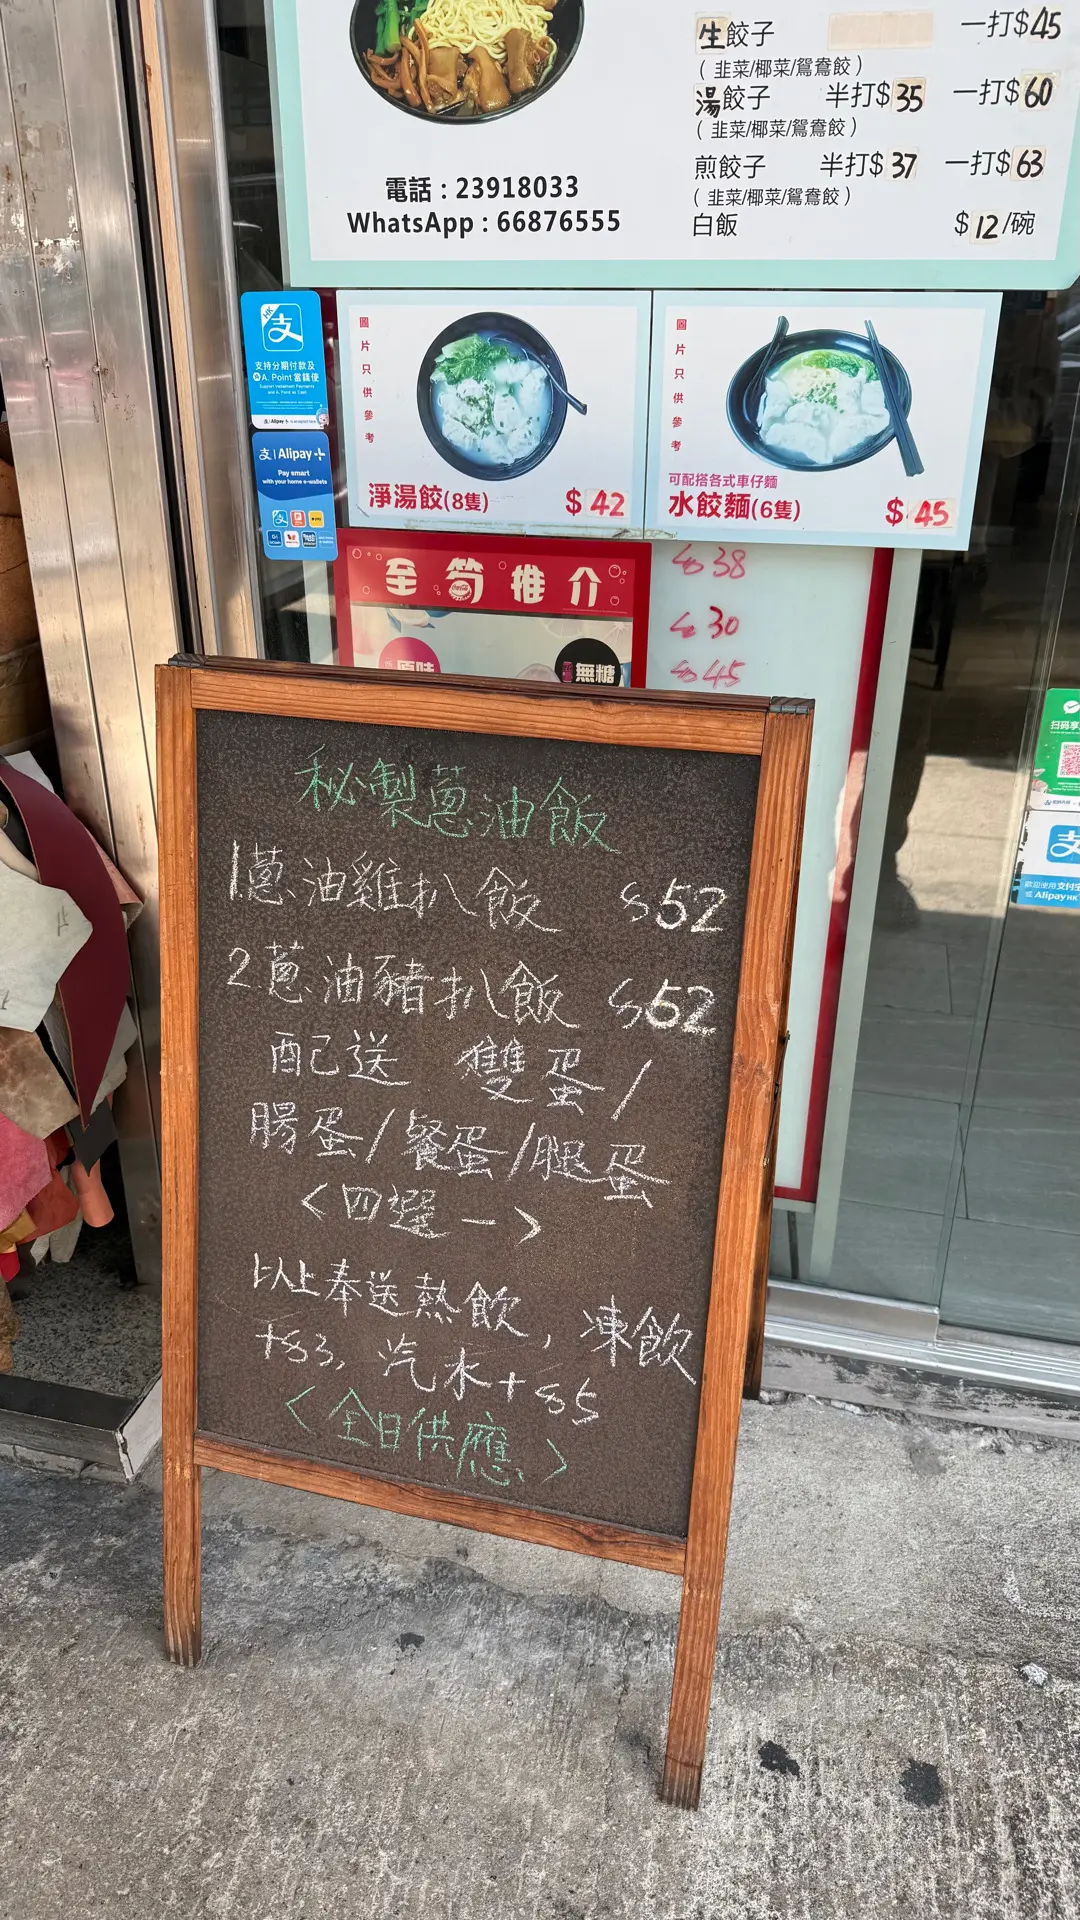 生餃子 一打$45
( 韭菜/椰菜/鴛鴦餃 )
湯餃子 半打$35 一打$60
( 韭菜/椰菜/鴛鴦餃 )
煎餃子 半打$37 一打$63
( 韭菜/椰菜/鴛鴦餃 )
白飯 $12/碗
電話 : 23918033
WhatsApp : 66876555
支持分期付款及
A. Point 當錢使
Support Instalment Payments
and A. Point as Cash
Alipay+
Pay smart
with your home e-wallets
圖片只供參考
淨湯餃(8隻) $42
圖片只供參考
可配搭各式車仔麵
水餃麵(6隻) $45
至筍推介
原味
無糖
$38
$30
$45
秘製蔥油飯
1.蔥油雞扒飯 $52
2.蔥油豬扒飯 $52
配送 雙蛋/
腸蛋/餐蛋/腿蛋
<四選一>
以上奉送熱飲, 凍飲
+$3, 汽水+$5
<全日供應>
扫码享
欢迎使用支付宝
或 AlipayHK